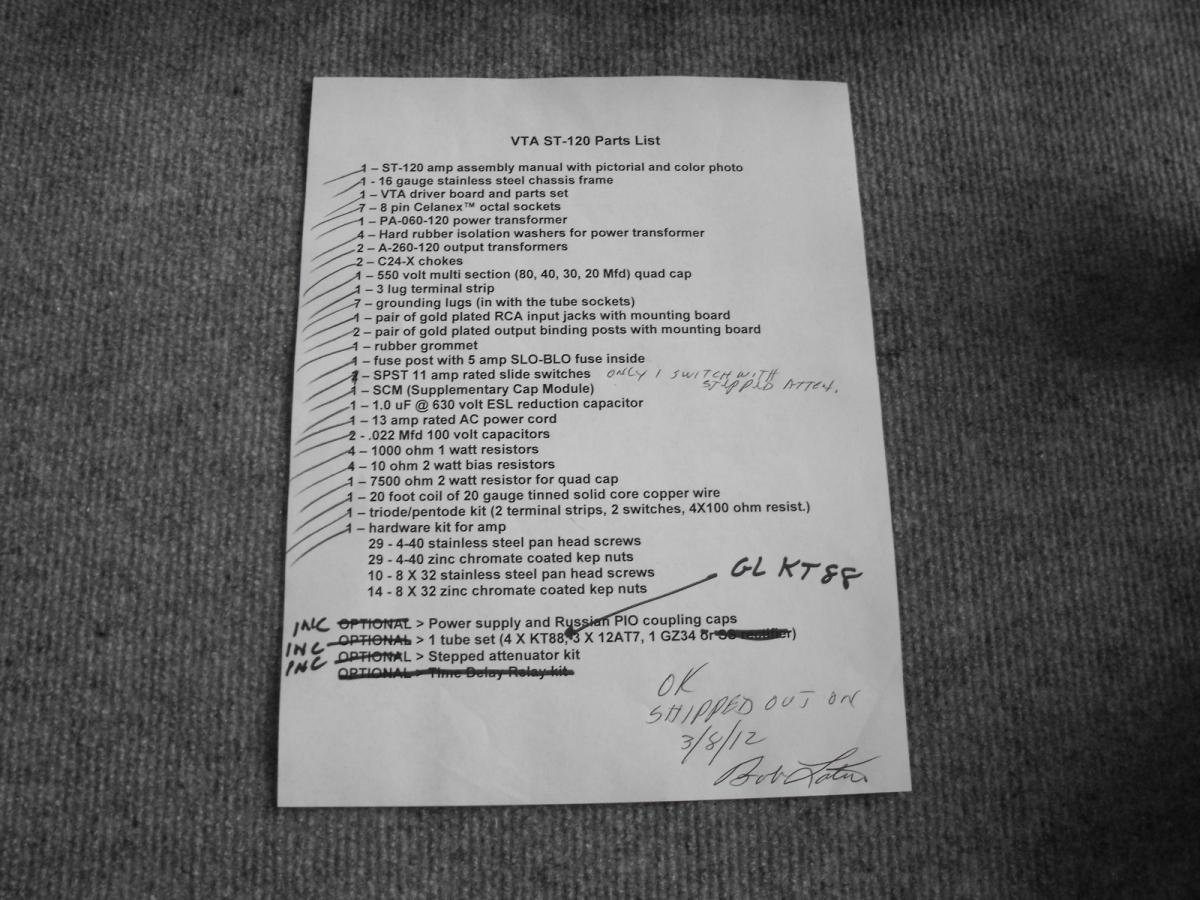 VTA ST-120 Parts List
1 – ST-120 amp assembly manual with pictorial and color photo
1 - 16 gauge stainless steel chassis frame
1 – VTA driver board and parts set
7 – 8 pin Celanex™ octal sockets
1 – PA-060-120 power transformer
4 – Hard rubber isolation washers for power transformer
2 – A-260-120 output transformers
2 – C24-X chokes
1 – 550 volt multi section (80, 40, 30, 20 Mfd) quad cap
1 – 3 lug terminal strip
7 – grounding lugs (in with the tube sockets)
1 – pair of gold plated RCA input jacks with mounting board
2 – pair of gold plated output binding posts with mounting board
1 – rubber grommet
1 – fuse post with 5 amp SLO-BLO fuse inside
– SPST 11 amp rated slide switches ONLY 1 SWITCH WITH
STEPPED ATTEN.
1 – SCM (Supplementary Cap Module)
1 – 1.0 uF @ 630 volt ESL reduction capacitor
1 – 13 amp rated AC power cord
2 - .022 Mfd 100 volt capacitors
4 – 1000 ohm 1 watt resistors
4 – 10 ohm 2 watt bias resistors
1 – 7500 ohm 2 watt resistor for quad cap
1 – 20 foot coil of 20 gauge tinned solid core copper wire
1 – triode/pentode kit (2 terminal strips, 2 switches, 4X100 ohm resist.)
1 – hardware kit for amp
29 - 4-40 stainless steel pan head screws
29 - 4-40 zinc chromate coated kep nuts
10 - 8 X 32 stainless steel pan head screws
14 - 8 X 32 zinc chromate coated kep nuts
GL KT88
INC OPTIONAL > Power supply and Russian PIO coupling caps
INC OPTIONAL > 1 tube set (4 X KT88, 3 X 12AT7, 1 GZ34 or SS rectifier)
INC OPTIONAL > Stepped attenuator kit
OPTIONAL > Time Delay Relay kit
OK
SHIPPED OUT ON
3/8/12
Bob Latino